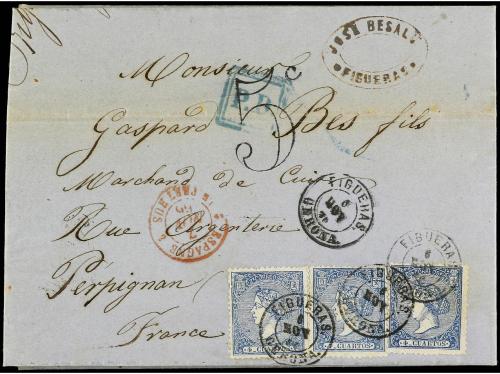 JOSE BESALU
FIGUERAS
Monsieur
P.D.
5c
Gaspard Bes fils
Marchand de Cuir
FIGUERAS
6
NOV
GERONA
ESPAGNE
Rue Argenterie
FIGUERAS
6
Perpignan
France
FIGUERAS
6
NOV
GERONA
FIGUERAS
6
NOV
GERONA
4 CUARTOS
4 CUARTOS
4 CUARTOS